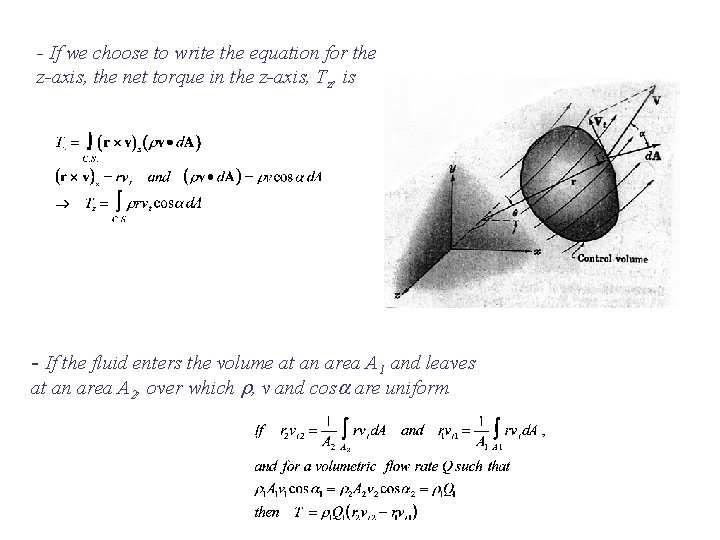 - If we choose to write the equation for the
z-axis, the net torque in the z-axis, Tz, is
T_z = ∫_{C.S.} (r × v)_z (ρv • dA)
(r × v)_z = rv_t and (ρv • dA) = ρv cos α dA
→ T_z = ∫_{C.S.} ρrv_t cos α dA
V
V_t
α
dA
r
y
θ
x
z
Control volume
- If the fluid enters the volume at an area A1 and leaves
at an area A2, over which ρ, v and cosα are uniform
If r_2v_{t2} = 1/A_2 ∫_{A_2} rv_t dA and r_1v_{t1} = 1/A_1 ∫_{A1} rv_t dA ,
and for a volumetric flow rate Q such that
ρ_1A_1v_1 cos α_1 = ρ_2A_2v_2 cos α_2 = ρ_1Q_1
then T = ρ_1Q_1(r_2v_{t2} − r_1v_{t1})